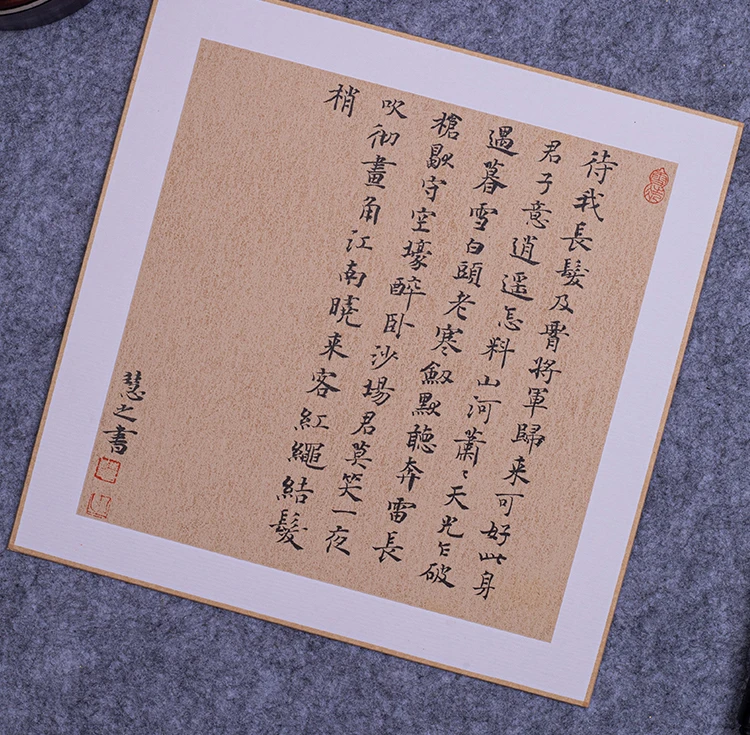 待我長髮及腎將軍歸来可好此身
君子意逍遥怎料山河蕭々天光乍破
遇暮雪白頭老寒劔默聽奔雷長
槍歇守空壕醉卧沙場君莫笑一夜
吹彻畫角江南曉来客紅繩結髮
梢
慧之書